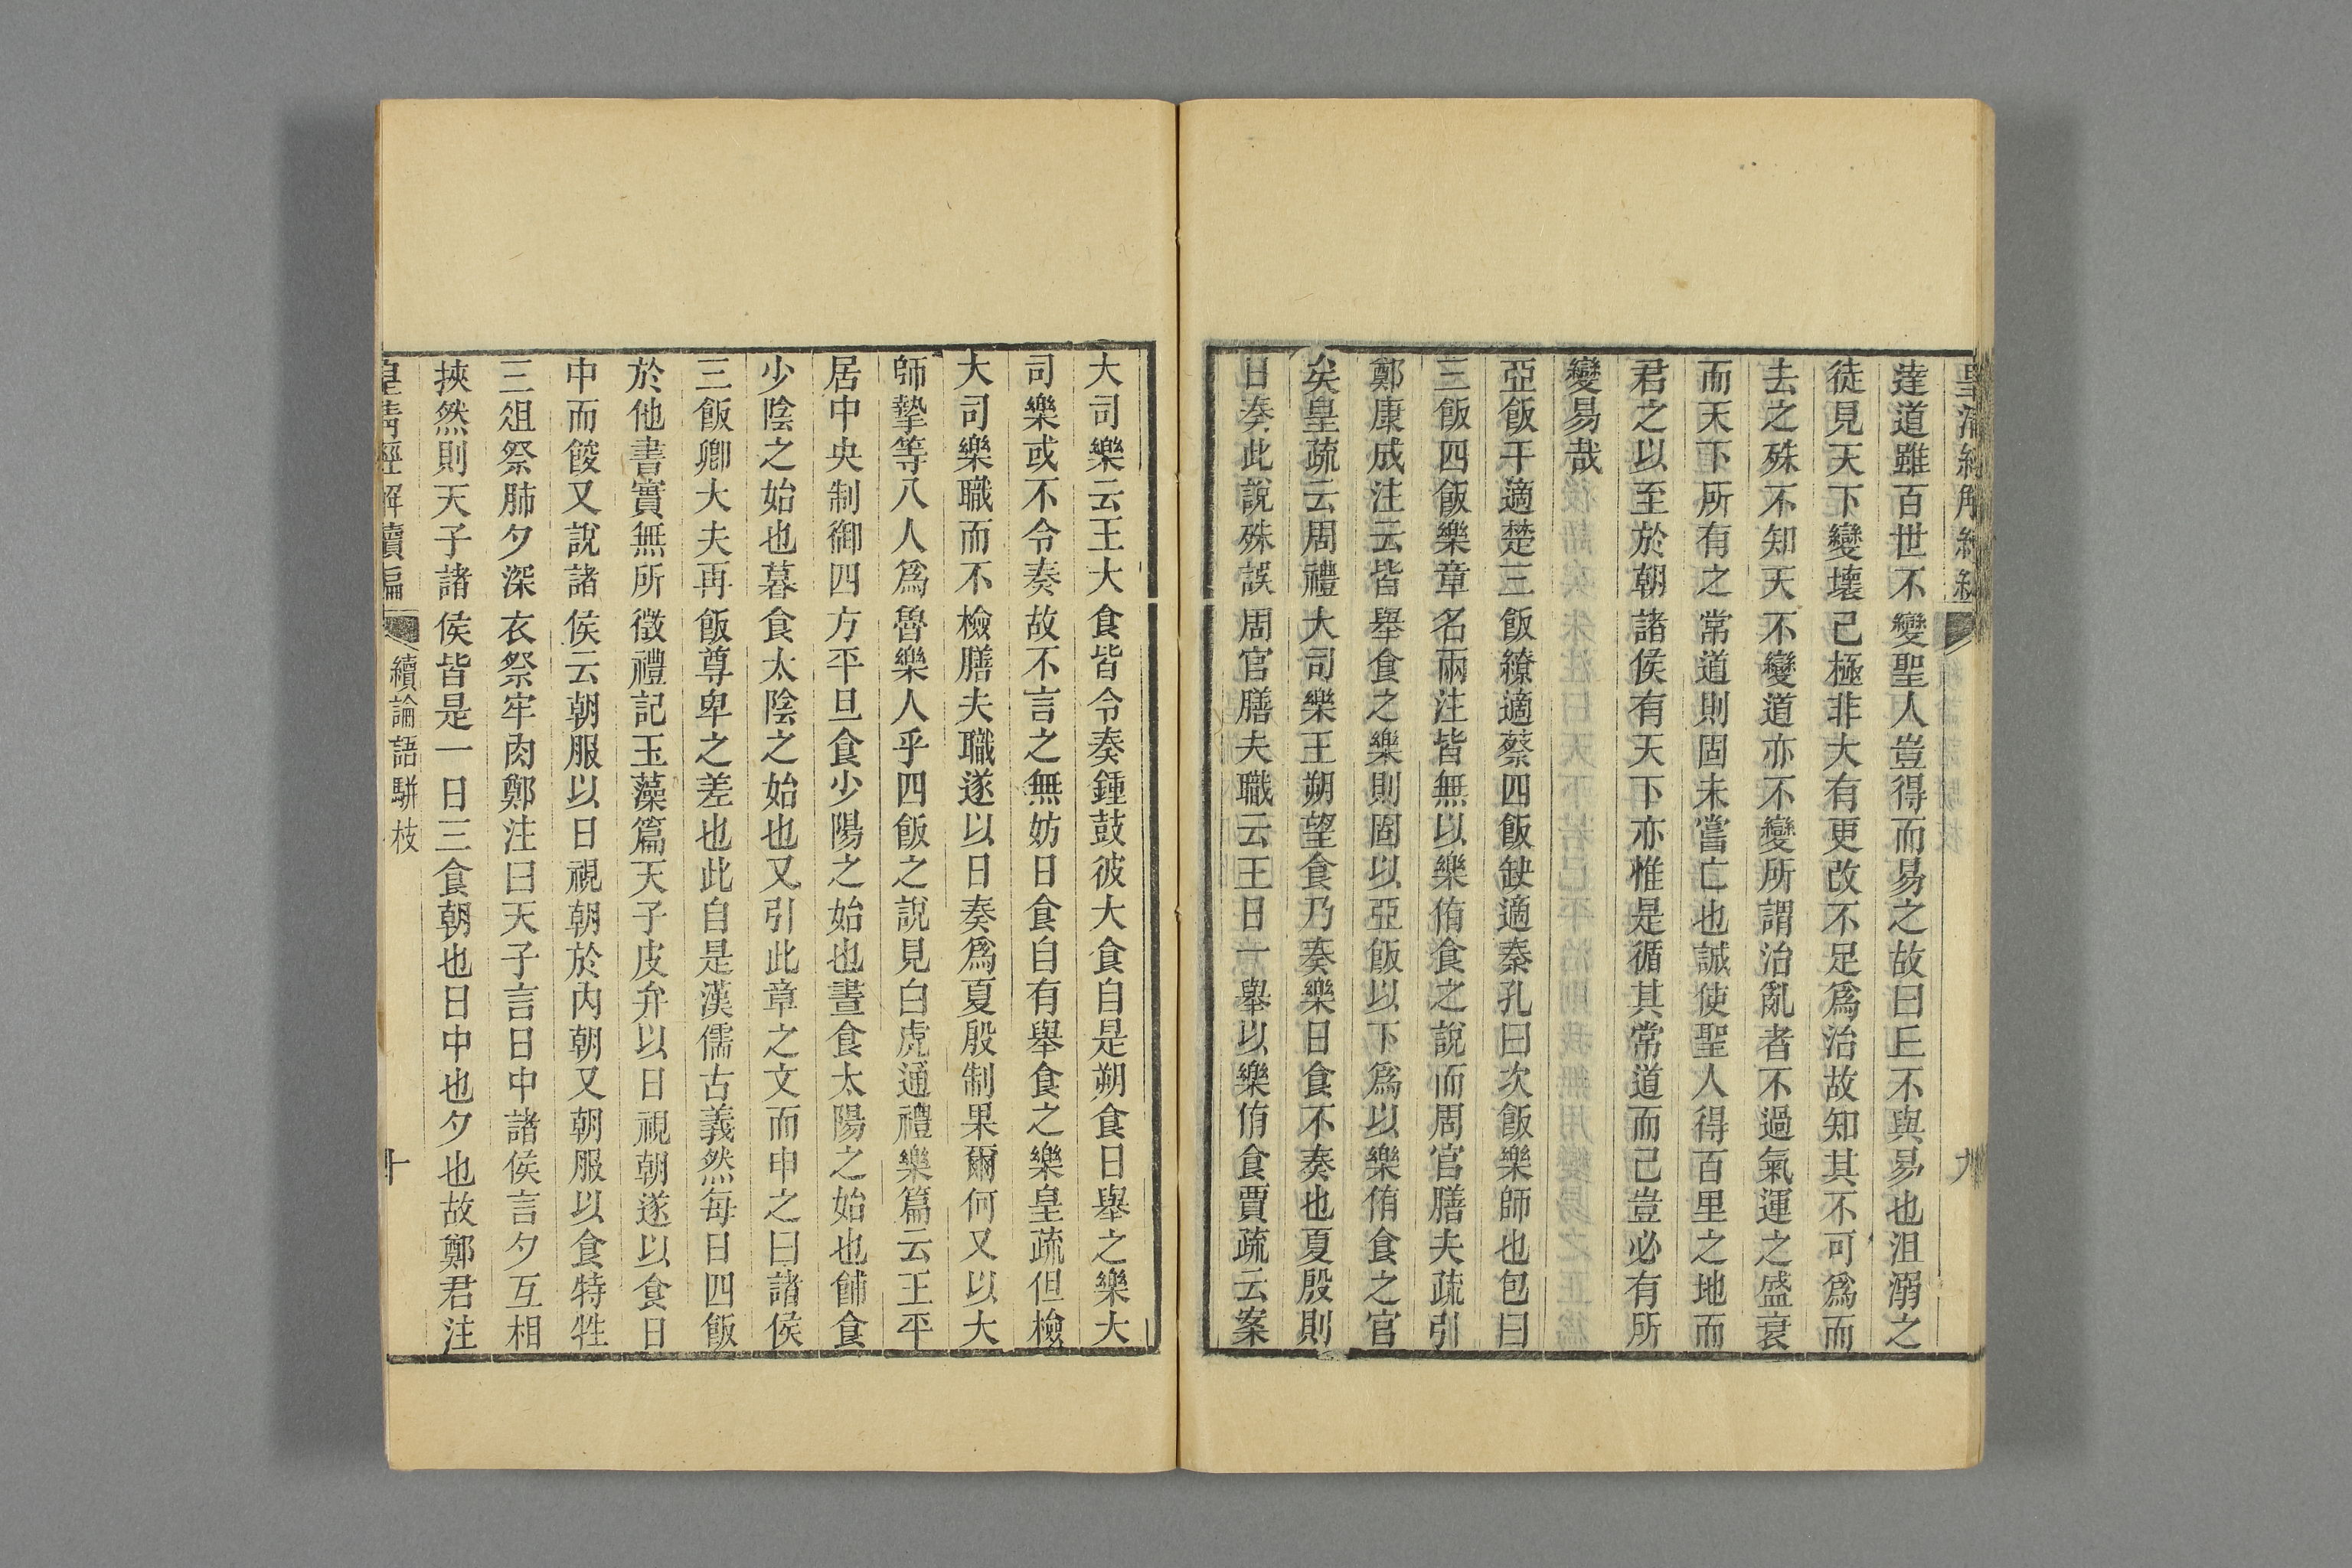 達道雖百世不變聖人豈得而易之故曰丘不與易也沮溺之
徒見天下變壞已極非大有更改不足爲治故知其不可爲而
去之殊不知天不變道亦不變所謂治亂者不過氣運之盛衰
而天下所有之常道則固未嘗亡也誠使聖人得百里之地而
君之以至於朝諸侯有天下亦惟是循其常道而已豈必有所
變易哉
亞飯干適楚三飯繚適蔡四飯缺適秦孔曰次飯樂師也包曰
三飯四飯樂章名兩注皆無以樂侑食之說而周官膳夫疏引
鄭康成注云皆舉食之樂則固以亞飯以下爲以樂侑食之官
矣皇疏云周禮大司樂王朔望食乃奏樂日食不奏也夏殷則
日奏此說殊誤周官膳夫職云王日一舉以樂侑食賈疏云案
大司樂云王大食皆令奏鍾鼓彼大食自是朔食日舉之樂大
司樂或不令奏故不言之無妨日食自有舉食之樂皇疏但檢
大司樂職而不檢膳夫職遂以日奏爲夏殷制果爾何又以大
師摯等八人爲魯樂人乎四飯之說見白虎通禮樂篇云王平
居中央制御四方平旦食少陽之始也晝食太陽之始也餔食
少陰之始也暮食太陰之始也又引此章之文而申之曰諸侯
三飯卿大夫再飯尊卑之差也此自是漢儒古義然每日四飯
於他書實無所徵禮記玉藻篇天子皮弁以日視朝遂以食日
中而餕又說諸侯云朝服以日視朝於內朝又朝服以食特牲
三俎祭肺夕深衣祭牢肉鄭注曰天子言日中諸侯言夕互相
挾然則天子諸侯皆是一日三食朝也日中也夕也故鄭君注
皇清經解續編 續論語駢枝 十